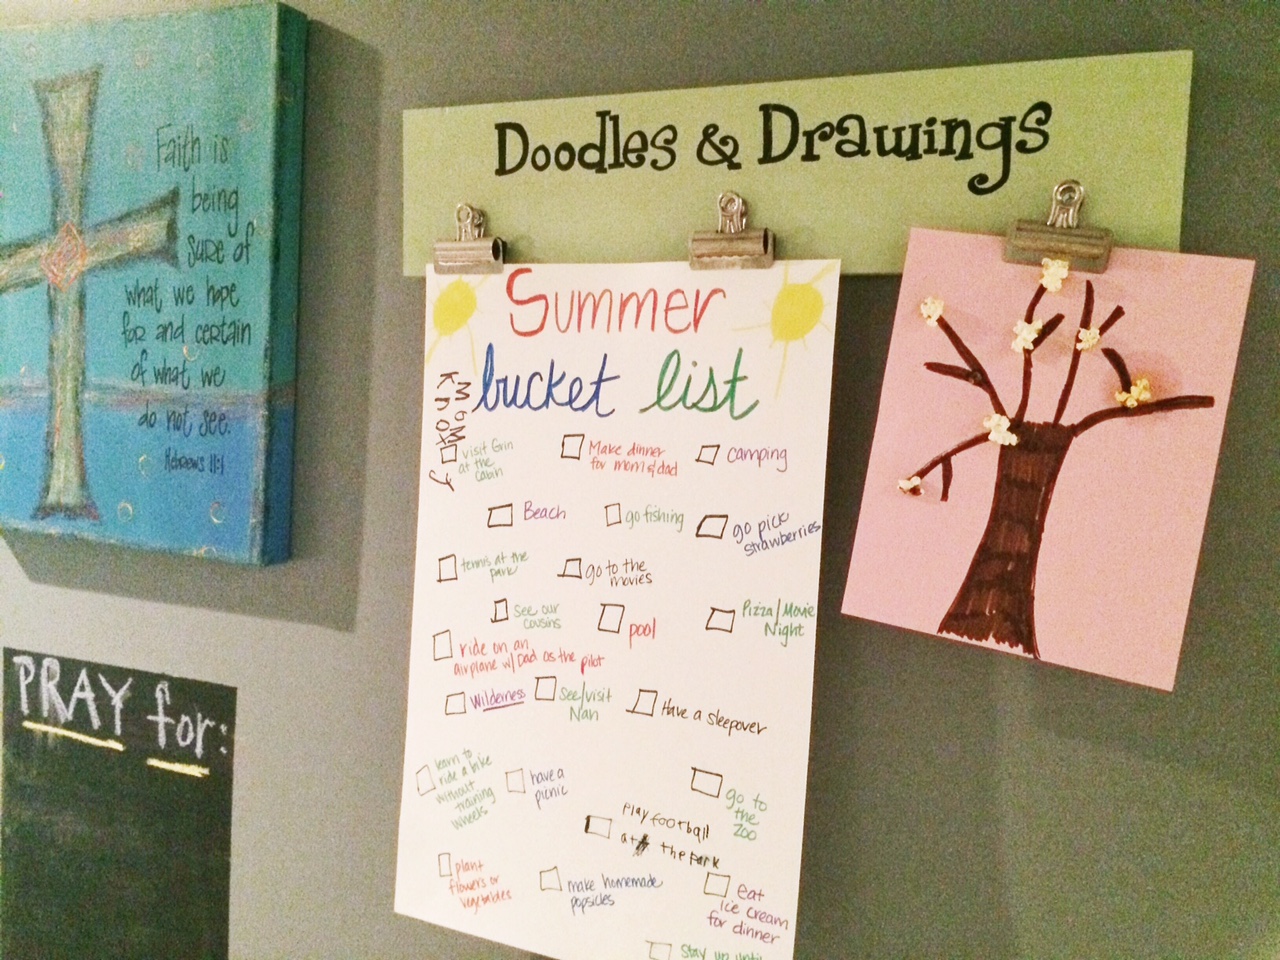 Faith is
being
sure of
what we hope
for and certain
of what we
do not see.
Hebrews 11:1
PRAY for:
Doodles & Drawings
Summer
bucket list
Mom
Knox
visit Erin
at the
cabin
Make dinner
for mom & dad
camping
Beach
go fishing
go pick
strawberries
tennis at the
park
go to the
movies
See our
cousins
pool
Pizza/Movie
Night
ride on an
airplane w/ Dad as the pilot
Wilderness
See/visit
Nan
Have a sleepover
learn to
ride a bike
without
training
wheels
have a
picnic
go to
the
zoo
Play football
at the park
plant
flowers or
vegetables
make homemade
popsicles
eat
ice cream
for dinner
Stay up until